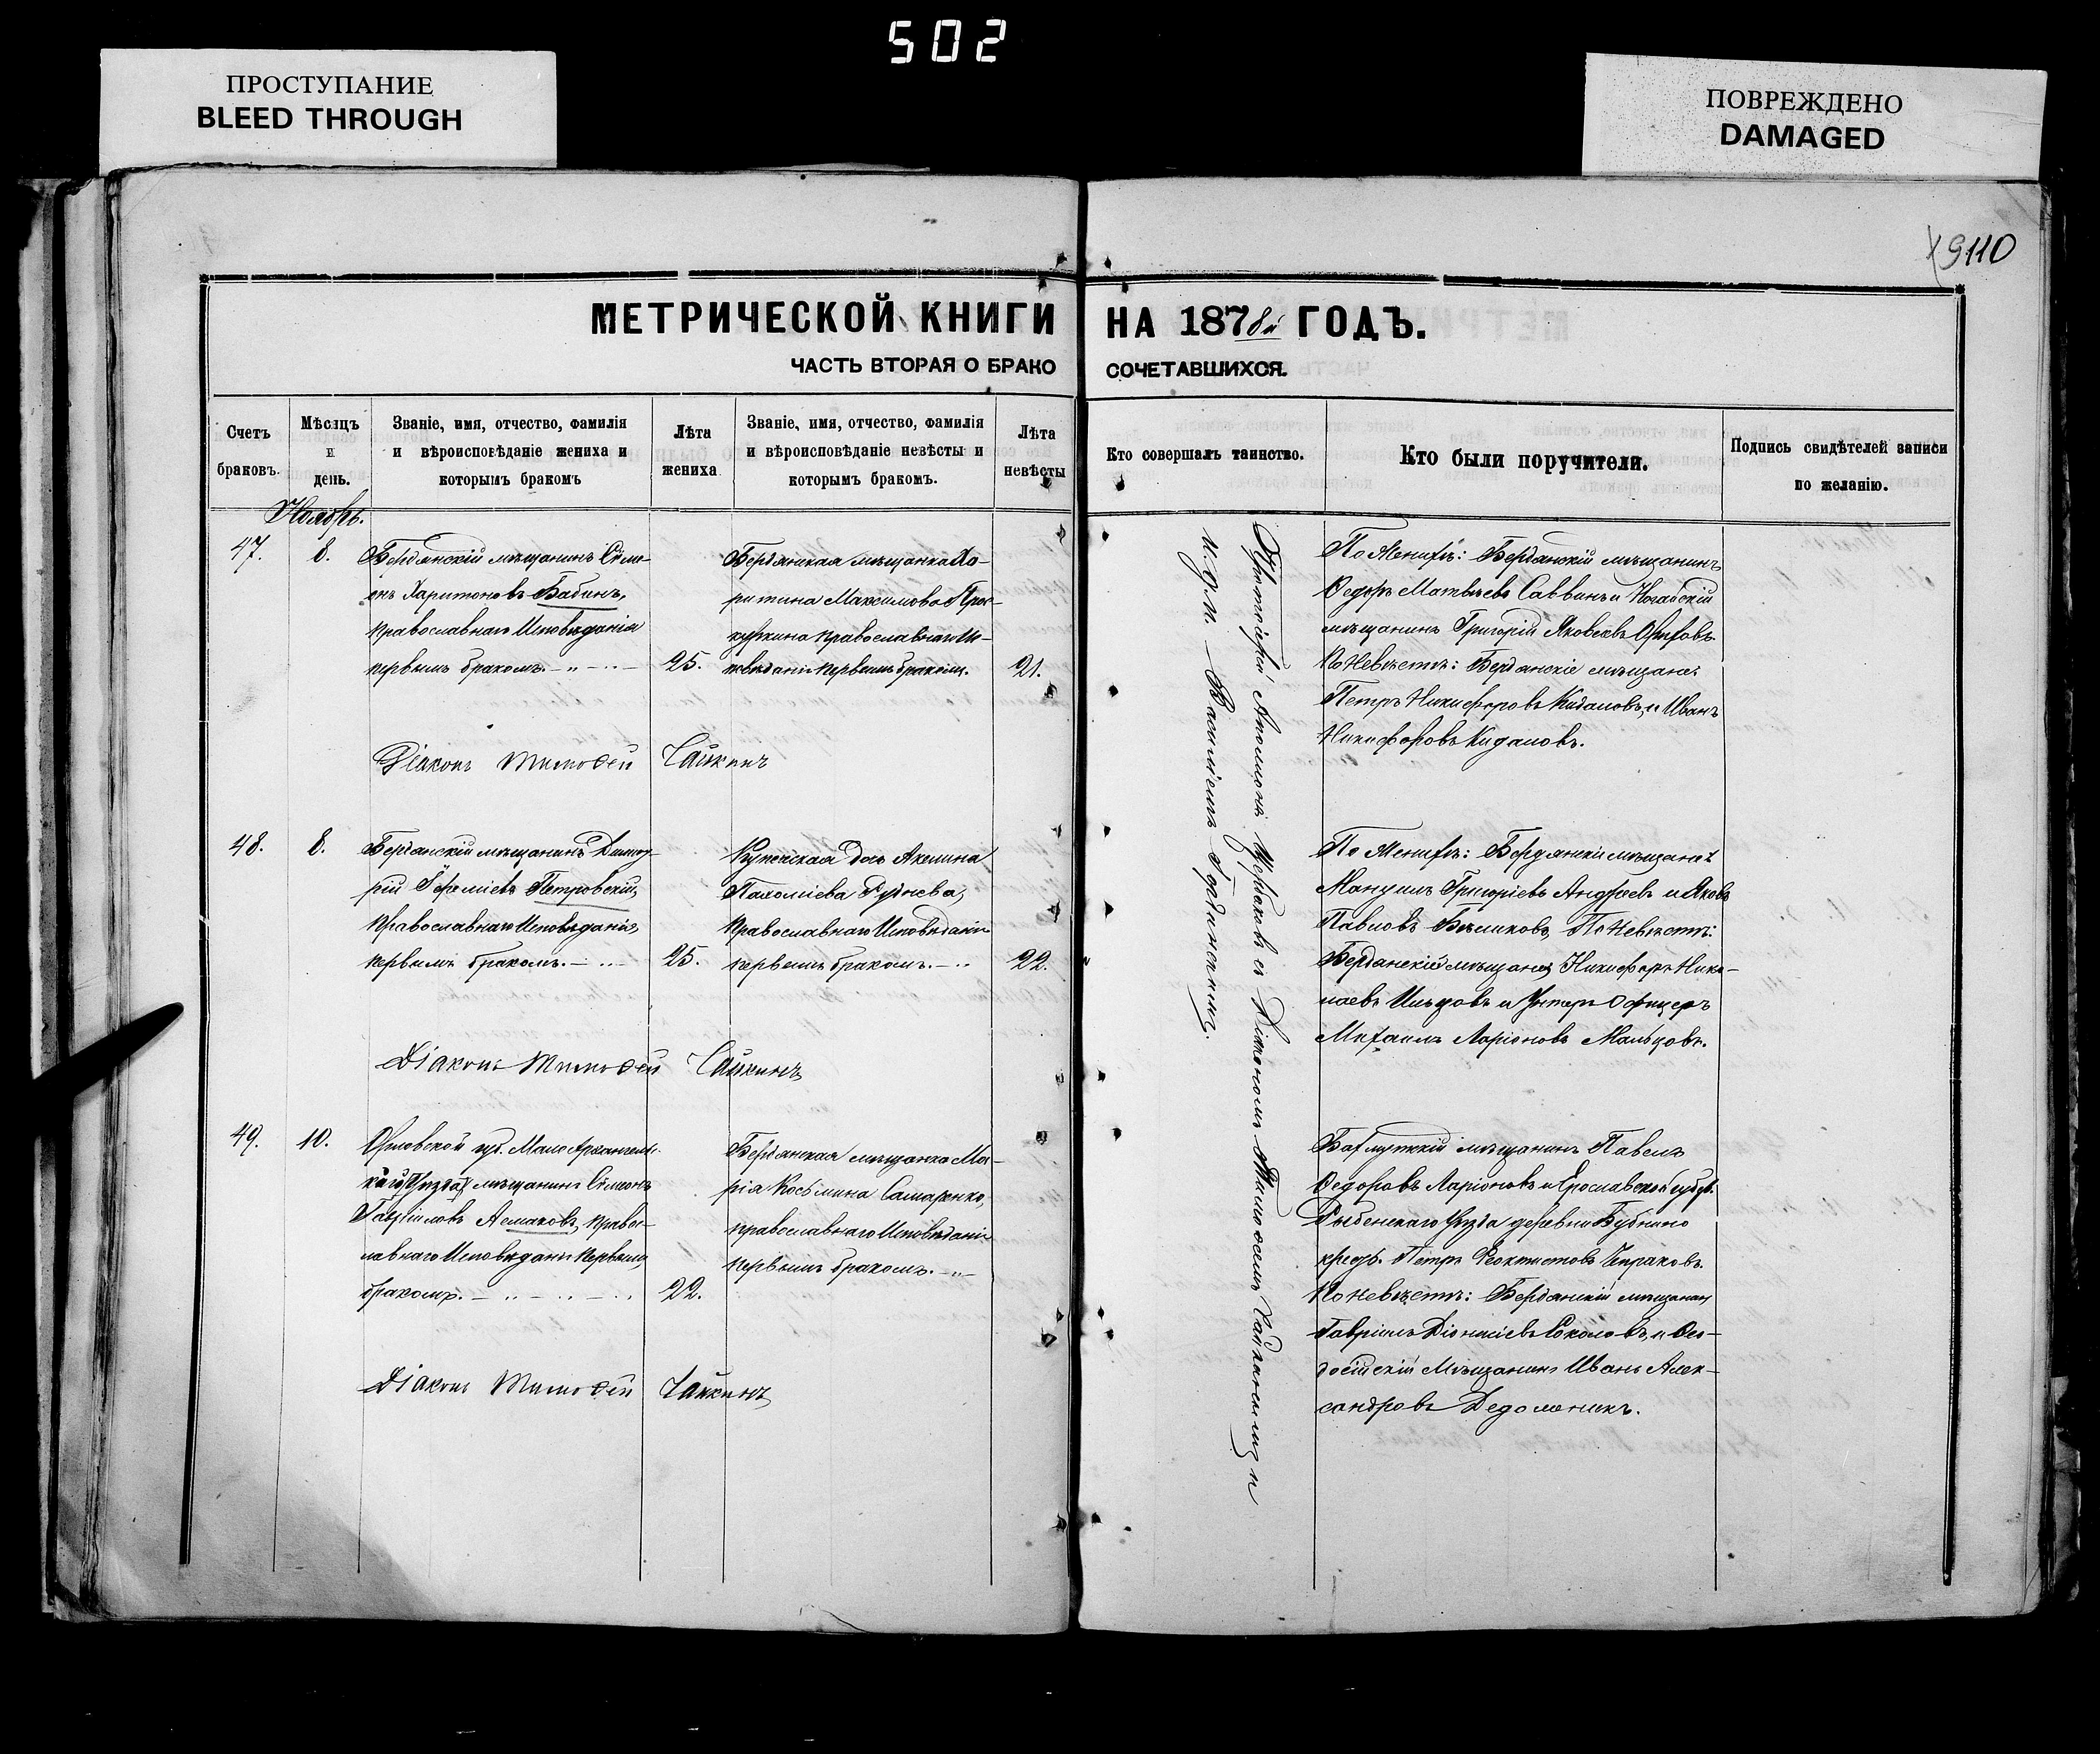 502
ПРОСТУПАНИЕ
BLEED THROUGH
ПОВРЕЖДЕНО
DAMAGED
9110
МЕТРИЧЕСКОЙ КНИГИ НА 1878й ГОДЪ.
ЧАСТЬ ВТОРАЯ О БРАКОСОЧЕТАВШИХСЯ.
Счетъ браковъ.
Мѣсяцъ и день.
Званіе, имя, отчество, фамилія
и вѣроисповѣданіе жениха и
которымъ бракомъ
Лѣта жениха
Званіе, имя, отчество, фамилія
и вѣроисповѣданіе невѣсты и
которымъ бракомъ.
Лѣта невѣсты
Кто совершалъ таинство.
Кто были поручители.
Подпись свидѣтелей записи
по желанію.
Ноябрь.
47.
8.
Бердянскій мѣщанинъ Симе-
онъ Харитоновъ Бабинъ,
православнаго Исповѣданія
первымъ бракомъ.
25.
Бердянская мѣщанка Ха-
ритина Максимова
православнаго Ис-
повѣданія первымъ бракомъ.
21.
Протоіерей Аполлонъ съ Діакономъ Тимоѳеемъ Чайкинымъ и
и. д. п. Василіемъ
По Женихѣ: Бердянскій мѣщанинъ
Ѳедоръ Матвѣевъ Саввинъ и Ногайскій
мѣщанинъ Григорій Яковлевъ
По Невѣстѣ: Бердянскіе мѣщане:
Петръ Никифоровъ Кидаловъ, и Иванъ
Никифоровъ Кидаловъ.
Діаконъ Тимоѳей Чайкинъ
48.
8.
Бердянскій мѣщанинъ Димит-
рій Іереміевъ Петровскій,
Православнаго Исповѣданія,
первымъ бракомъ.
25.
Купеческая дочь Акилина
Пахоміева Руднева,
Православнаго Исповѣданія
первымъ бракомъ.
22.
По Женихѣ: Бердянскіе мѣщане
Мануилъ Григоріевъ Андреевъ и Яковъ
Павловъ Бѣликовъ, По Невѣстѣ:
Бердянскій мѣщанинъ Никифоръ Нико-
лаевъ и Унтеръ Офицеръ
Михаилъ Ларіоновъ Мальцовъ.
Діаконъ Тимоѳей Чайкинъ
49.
10.
Орловской губ. Мало Архангельс-
каго Уѣзда мѣщанинъ Симеонъ
Гавріиловъ Асмаковъ, правос-
лавнаго Исповѣданія первымъ
бракомъ.
22.
Бердянская мѣщанка Ма-
рія Косьмина Самаренко,
православнаго Исповѣданія
первымъ бракомъ.
Бахмутскій мѣщанинъ Павелъ
Ѳедоровъ Ларіоновъ и Ерославской губ.
Рыбенскаго Уѣзда деревни Бубнино
Петръ Ѳеоктистовъ Чепраковъ.
По невѣстѣ: Бердянскій мѣщанинъ
Гавріилъ Діонисіевъ Соколовъ, и Ѳео-
досійскій Мѣщанинъ Иванъ Алек-
сандровъ
Діаконъ Тимоѳей Чайкинъ